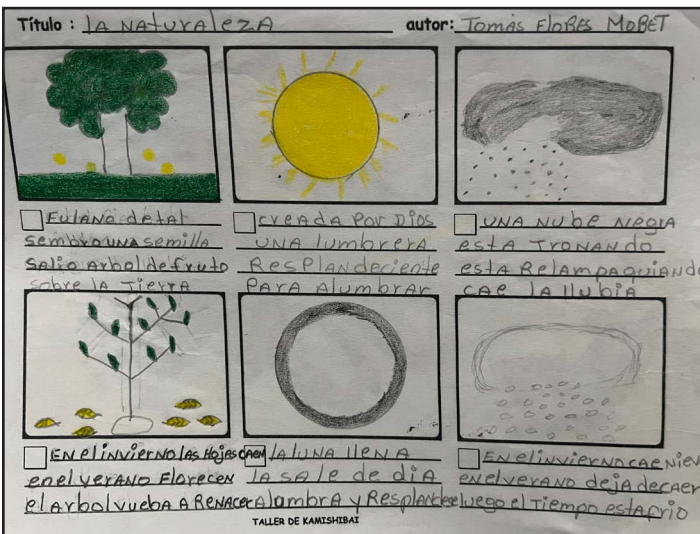 Título : LA NATURALEZA
autor: TOMÁS FLORES MOBET
FULANO de tal
sembro una semilla
salio Arbol de fruto
sobre la Tierra
creada Por DIOS
UNA lumbrera
ResPlandeciente
PARA Alumbrar
UNA Nube NegRA
esta TRONANdo
esta Relampaquiando
cae la llubia
EN el invierno las Hojas caen
en el verano Florecen
el arbol vueba A Renacer
la luna llena
la sale de dia
Alambra y Resplandece
EN el invierno cae Nieve
en el verano deja de caer
luego el Tiempo esta frio
TALLER DE KAMISHIBAI